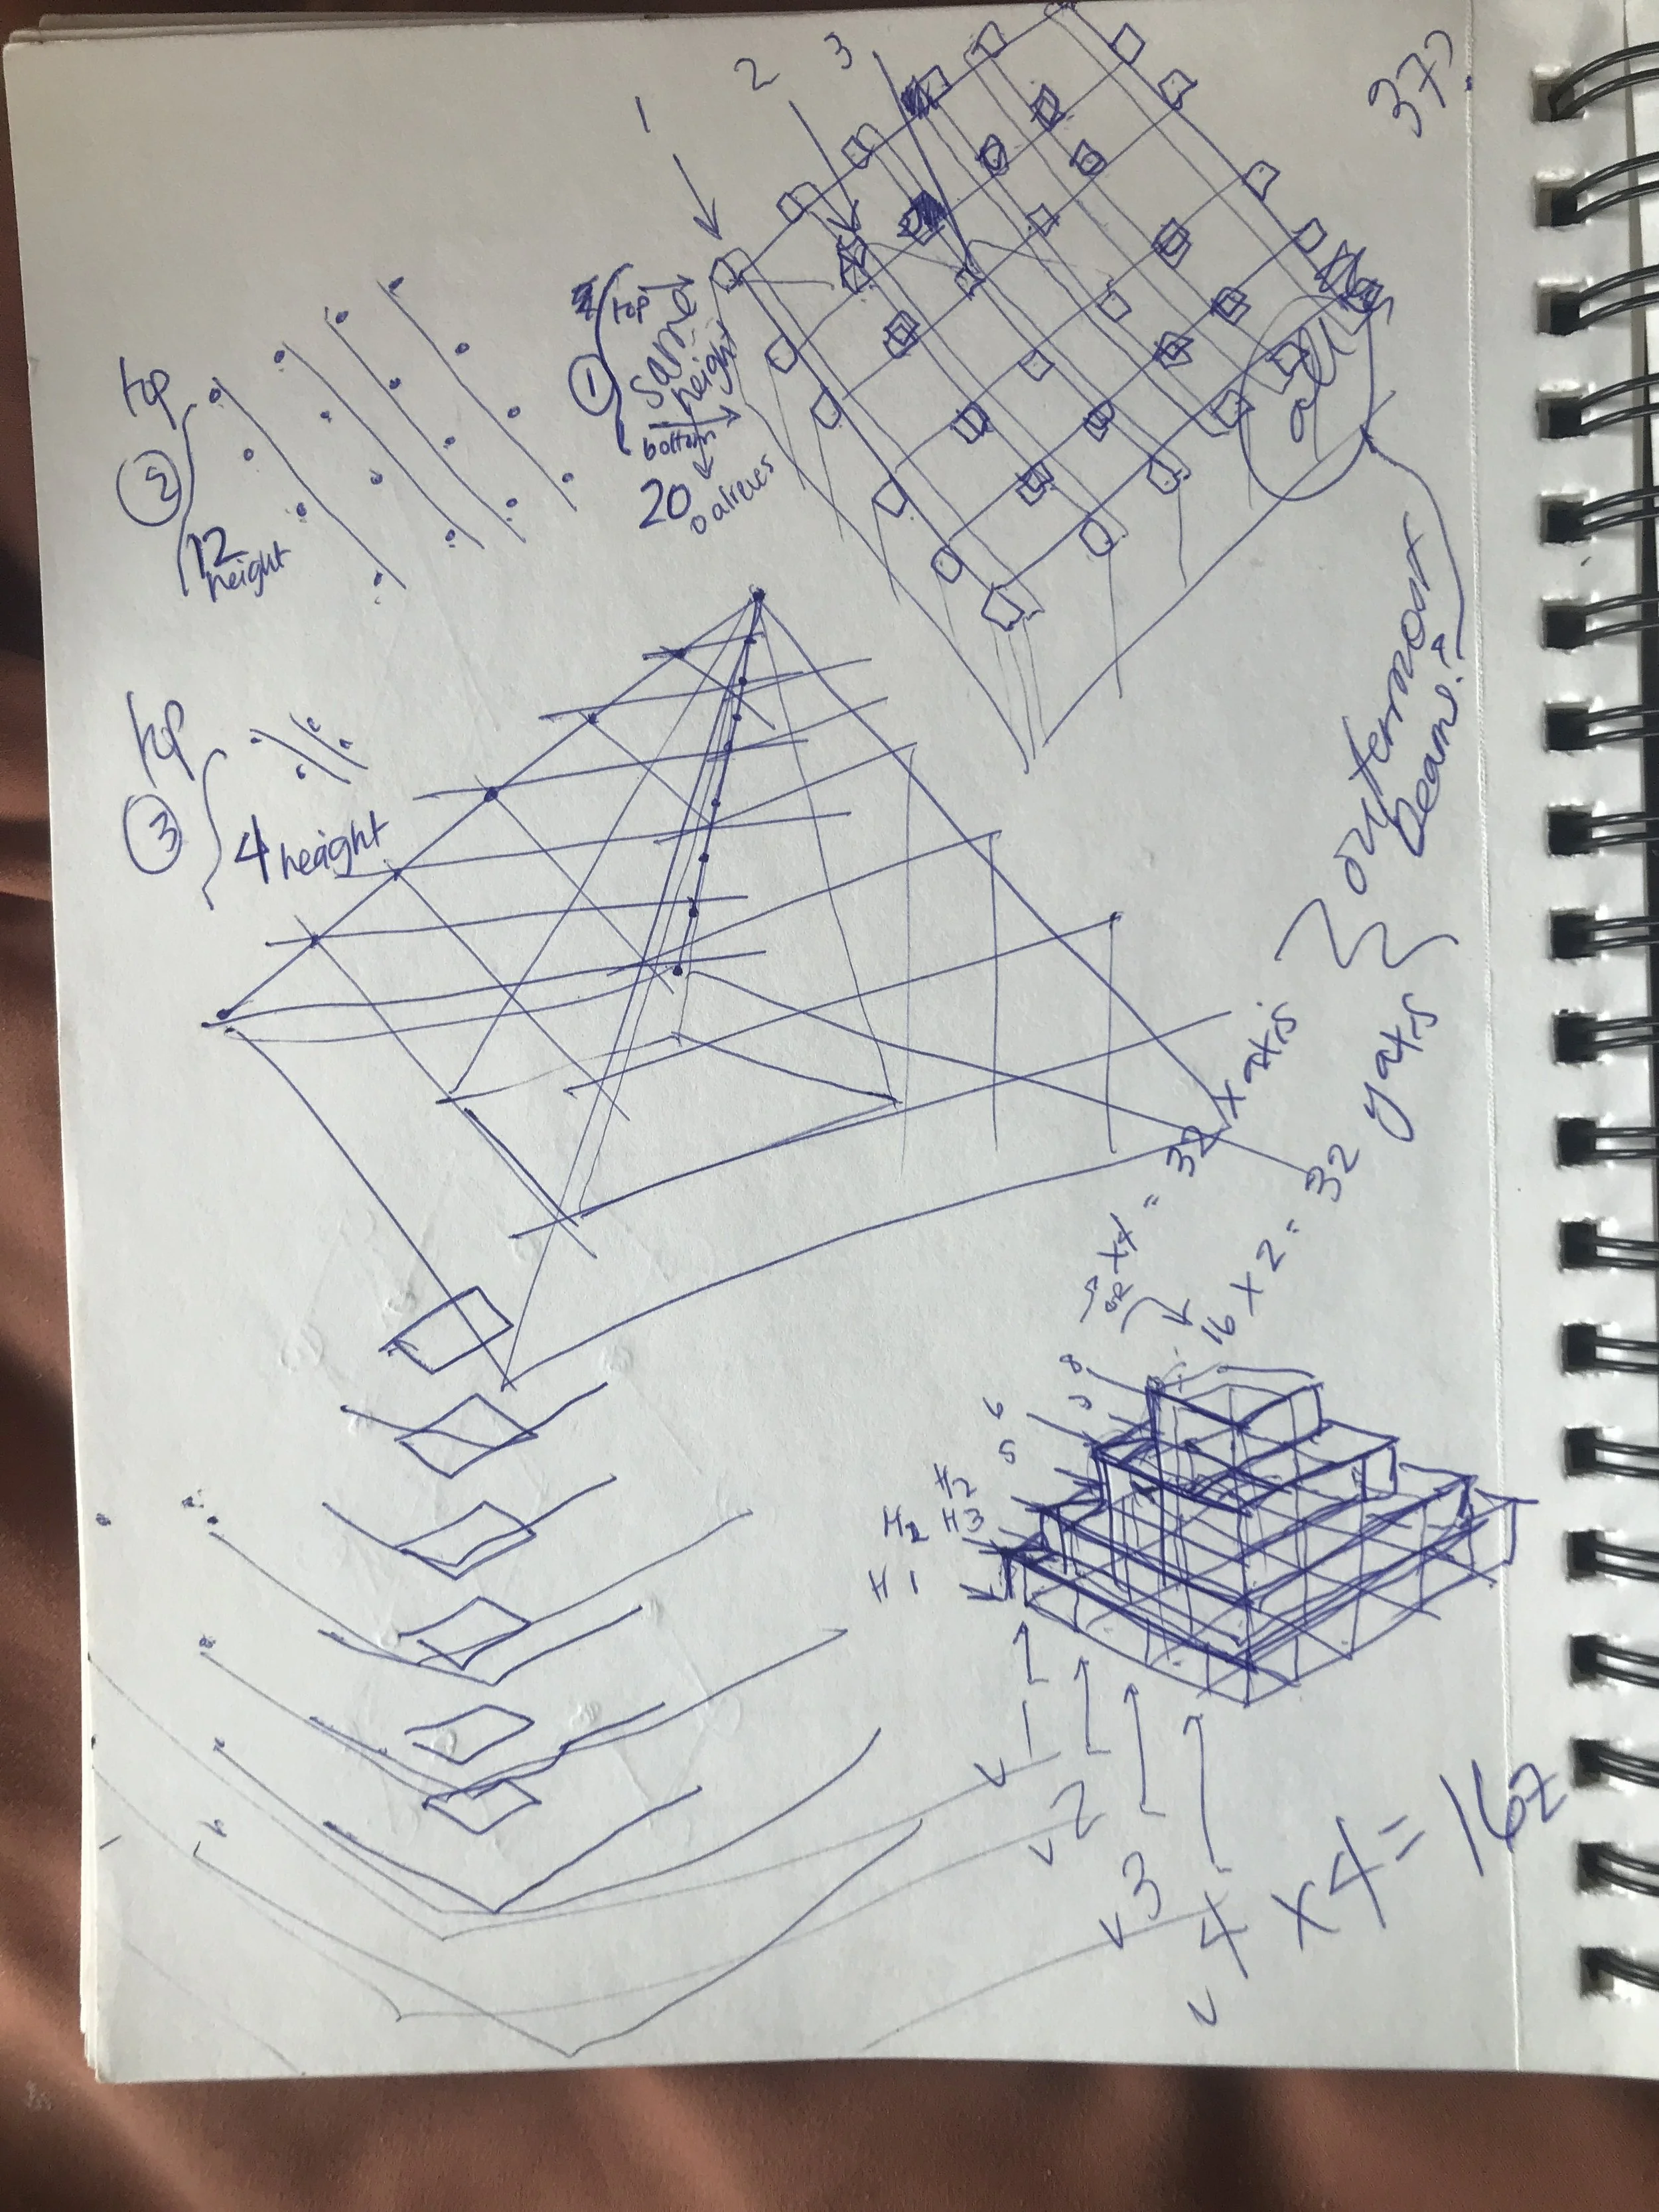 37?
1
2
3
top
same
height
bottom
20
all 4
outermost
beams
top
2
12
height
top
3
4 height
1
x4 = 32 x axis
16 x 2 = 32 y axis
8
6
5
H2
H2 H3
H1
v1
v2
v3
v4 x4 = 16z